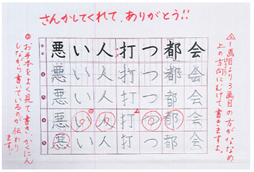 さんかしてくれて、ありがとう!!
△一画目より3画目の方がななめ
上の方向にむけて書きますよ。
悪い人打つ都会
悪い人打つ都会
悪い人打つ都会
悪い人打つ都会
悪い人打つ都会
◎お手本をよく見て書き、かくにん
しながら書いているのが伝わり
ます。